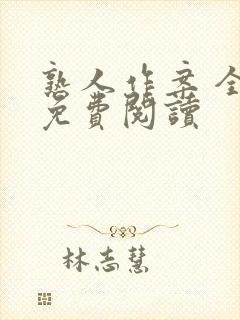 熟人作案全
免費閱讀
林志慧